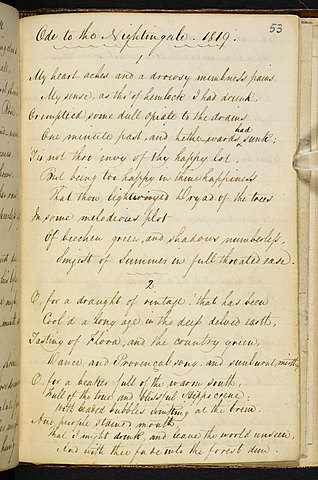 55
Ode to the Nightingale. 1819.
1
My heart aches and a drowsy numbness pains
My sense, as tho' of hemlock I had drunk,
Or emptied some dull opiate to the drains
One minute past, and lethe-wards had sunk;
Tis not thro' envy of thy happy lot
But being too happy in thine happiness
That thou, lightwinged Dryad of the trees
In some melodious plot
Of beechen green, and shadows numberless,
Singest of Summer in full throated ease.
2
O, for a draught of vintage that has been
Cool'd a long age in the deep delved earth,
Tasting of Flora, and the country green,
Dance, and Provencal song, and sunburnt mirth,
O, for a beaker full of the warm south,
Full of the true and blissful Hippocrene,
With beaded bubbles winking at the brim,
And purple stained mouth,
That I might drink, and leave the world unseen,
And with thee fade into the forest dim.